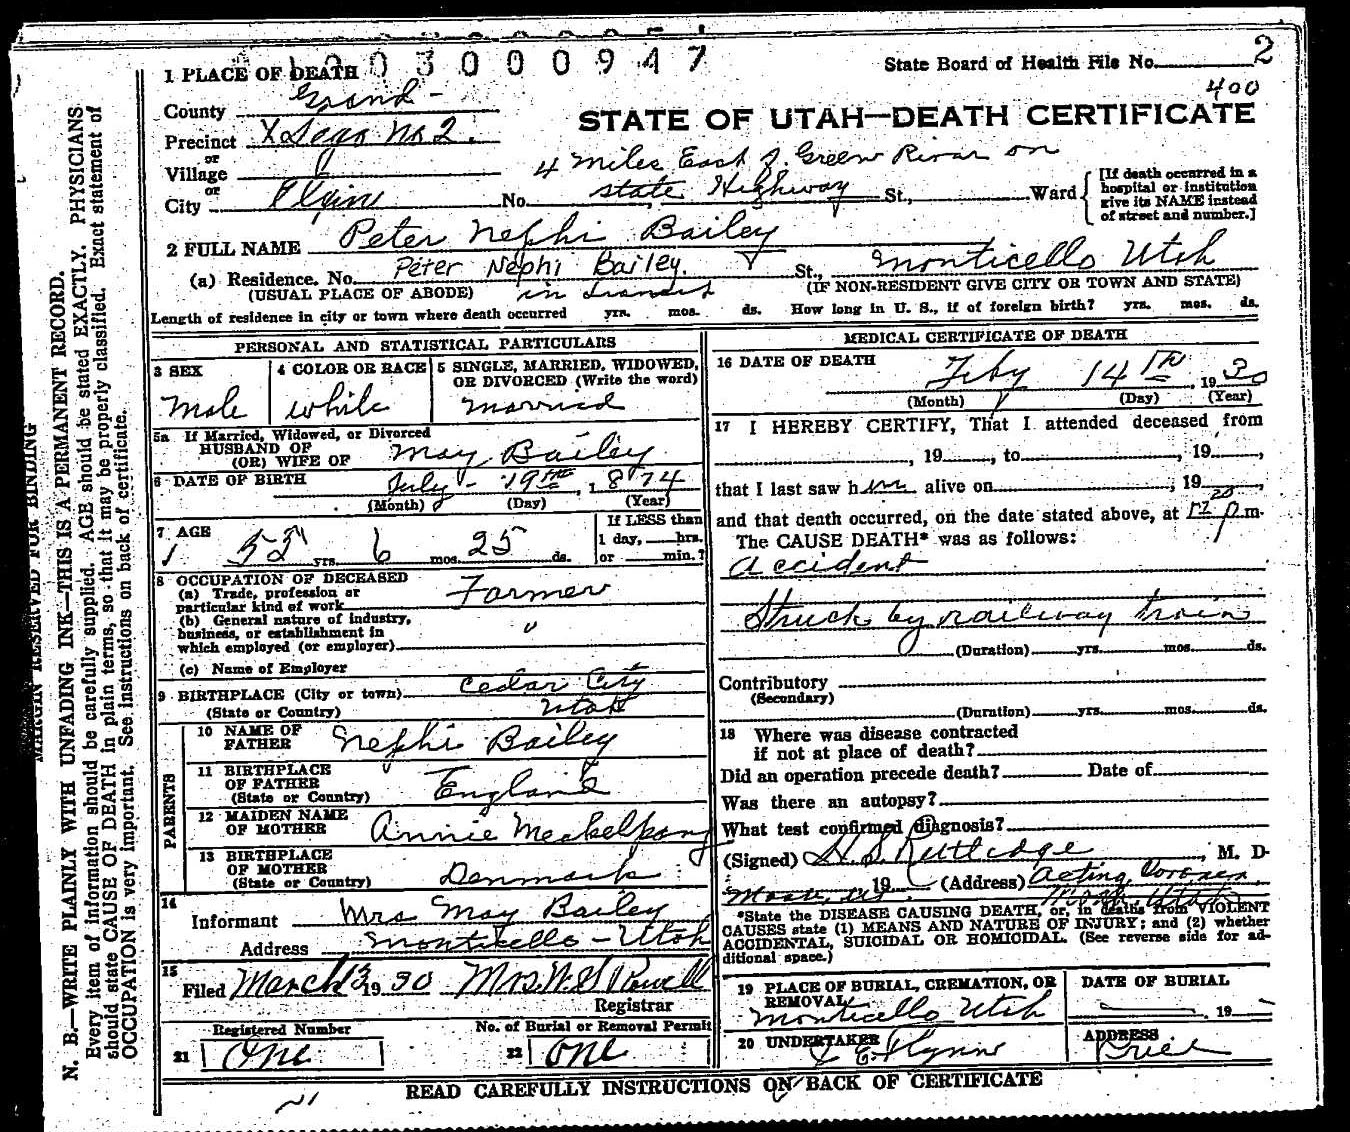 1203000947
State Board of Health File No. 2
400
1 PLACE OF DEATH
County Grand
STATE OF UTAH—DEATH CERTIFICATE
Precinct X Sego No 2.
or
Village
4 miles East of Green River on
or
City Elgin No. state Highway St., Ward
[If death occurred in a
hospital or institution
give its NAME instead
of street and number.]
2 FULL NAME Peter Nephi Bailey
(a) Residence. No. Peter Nephi Bailey. St., Monticello Utah
(USUAL PLACE OF ABODE) in transit (IF NON-RESIDENT GIVE CITY OR TOWN AND STATE)
Length of residence in city or town where death occurred yrs. mos. ds. How long in U. S., if of foreign birth? yrs. mos. ds.
PERSONAL AND STATISTICAL PARTICULARS
3 SEX
Male
4 COLOR OR RACE
white
5 SINGLE, MARRIED, WIDOWED,
OR DIVORCED (Write the word)
married
5a If Married, Widowed, or Divorced
HUSBAND OF
(OR) WIFE OF May Bailey
6 DATE OF BIRTH July - 19th, 1874
(Month) (Day) (Year)
7 AGE
55 yrs. 6 mos. 25 ds.
If LESS than
1 day, hrs.
or min.?
8 OCCUPATION OF DECEASED
(a) Trade, profession or
particular kind of work Farmer
(b) General nature of industry,
business, or establishment in "
which employed (or employer)
(c) Name of Employer
9 BIRTHPLACE (City or town) Cedar City
(State or Country) Utah
PARENTS
10 NAME OF
FATHER Nephi Bailey
11 BIRTHPLACE
OF FATHER England
(State or Country)
12 MAIDEN NAME
OF MOTHER Annie
13 BIRTHPLACE
OF MOTHER
(State or Country) Denmark
14
Informant Mrs May Bailey
Address Monticello - Utah
15
Filed March 1930
Registrar
Registered Number
21 One
No. of Burial or Removal Permit
22 One
MEDICAL CERTIFICATE OF DEATH
16 DATE OF DEATH
Feby 14th, 1930
(Month) (Day) (Year)
17 I HEREBY CERTIFY, That I attended deceased from
, 19 , to , 19 ,
that I last saw him alive on , 19 ,
and that death occurred, on the date stated above, at 12 20 p.m.
The CAUSE DEATH* was as follows:
Accident
Struck by railway train
(Duration) yrs. mos. ds.
Contributory
(Secondary)
(Duration) yrs. mos. ds.
18 Where was disease contracted
if not at place of death?
Did an operation precede death? Date of
Was there an autopsy?
What test confirmed diagnosis?
(Signed) H S Rutledge, M. D.
Moab, Ut. 19 (Address) Acting Coroner
Moab, Utah
*State the DISEASE CAUSING DEATH, or, in deaths from VIOLENT
CAUSES state (1) MEANS AND NATURE OF INJURY; and (2) whether
ACCIDENTAL, SUICIDAL OR HOMICIDAL. (See reverse side for ad-
ditional space.)
19 PLACE OF BURIAL, CREMATION, OR
REMOVAL
Monticello Utah
DATE OF BURIAL
, 19
20 UNDERTAKER
E. Flynn
ADDRESS
Price
READ CAREFULLY INSTRUCTIONS ON BACK OF CERTIFICATE
MARGIN RESERVED FOR BINDING
N. B.—WRITE PLAINLY WITH UNFADING INK—THIS IS A PERMANENT RECORD.
Every item of information should be carefully supplied. AGE should be stated EXACTLY. PHYSICIANS
should state CAUSE OF DEATH in plain terms, so that it may be properly classified. Exact statement of
OCCUPATION is very important. See instructions on back of certificate.